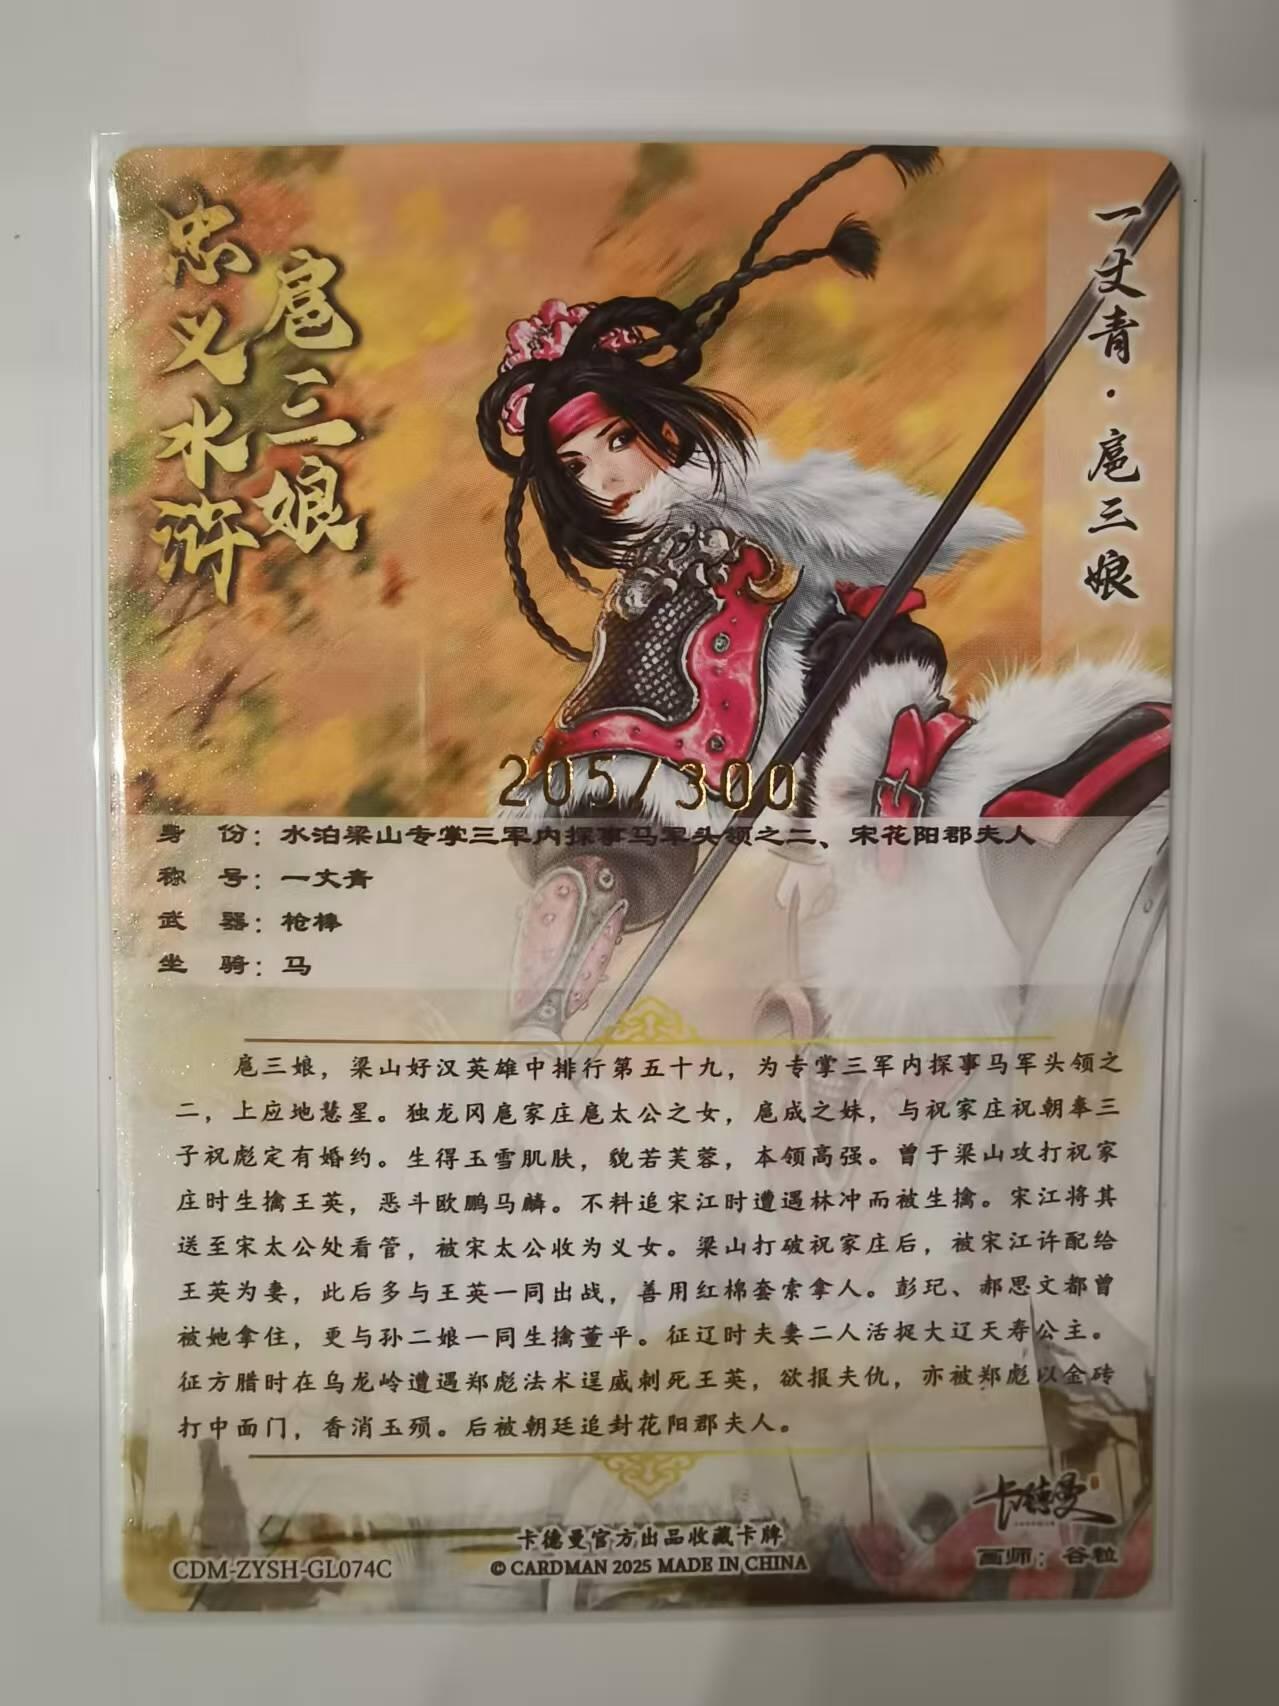 忠义水浒
扈三娘
一丈青·扈三娘
205/300
身 份：水泊梁山专掌三军内探事马军头领之二、宋花阳郡夫人
称 号：一丈青
武 器：枪棒
坐 骑：马
扈三娘，梁山好汉英雄中排行第五十九，为专掌三军内探事马军头领之
二，上应地慧星。独龙冈扈家庄扈太公之女，扈成之妹，与祝家庄祝朝奉三
子祝彪定有婚约。生得玉雪肌肤，貌若芙蓉，本领高强。曾于梁山攻打祝家
庄时生擒王英，恶斗欧鹏马麟。不料追宋江时遭遇林冲而被生擒。宋江将其
送至宋太公处看管，被宋太公收为义女。梁山打破祝家庄后，被宋江许配给
王英为妻，此后多与王英一同出战，善用红棉套索拿人。彭玘、郝思文都曾
被她拿住，更与孙二娘一同生擒董平。征辽时夫妻二人活捉大辽天寿公主。
征方腊时在乌龙岭遭遇郑彪法术逞威刺死王英，欲报夫仇，亦被郑彪以金砖
打中面门，香消玉殒。后被朝廷追封花阳郡夫人。
卡德曼
画师：谷粒
卡德曼官方出品收藏卡牌
© CARDMAN 2025 MADE IN CHINA
CDM-ZYSH-GL074C